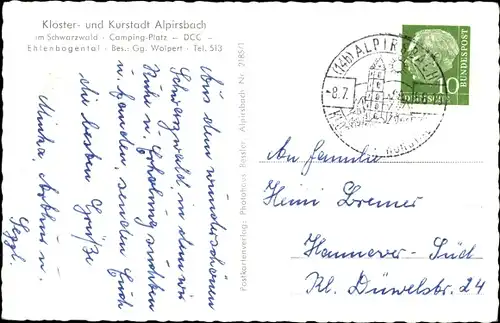 Kloster- und Kurstadt Alpirsbach
im Schwarzwald - Camping-Platz - DCC -
Ehlenbogental - Bes.: Gg. Walpert - Tel. 513
Aus dem wunderschönen
Schwarzwald, in dem wir
Ruhe u. Erholung suchten
u. fanden, senden Euch
die besten Grüße
Minka, Arthur u.
Postkartenverlag: Photohaus Bässler, Alpirsbach Nr. 2185/1
(14b) ALPIRSBACH
- 8.7.
10
DEUTSCHE
BUNDESPOST
An Familie
Heini Bremer
Hannover-Süd
Kl. Düwelstr. 24